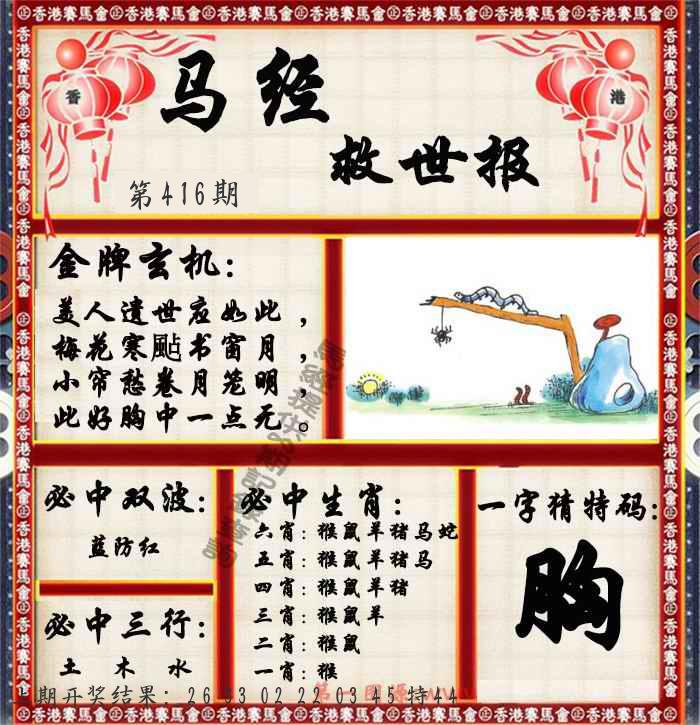 香港賽馬會
香 港
马经
救世报
第416期
金牌玄机:
美人遗世应如此，
梅花寒飐书窗月，
小帘愁卷月笼明，
此好胸中一点无。
必中双波:
蓝防红
必中三行:
土 木 水
必中生肖:
六肖:猴鼠羊猪马蛇
五肖:猴鼠羊猪马
四肖:猴鼠羊猪
三肖:猴鼠羊
二肖:猴鼠
一肖:猴
一字猜特码:
胸
期开奖结果: 26 33 02 22 03 45特44